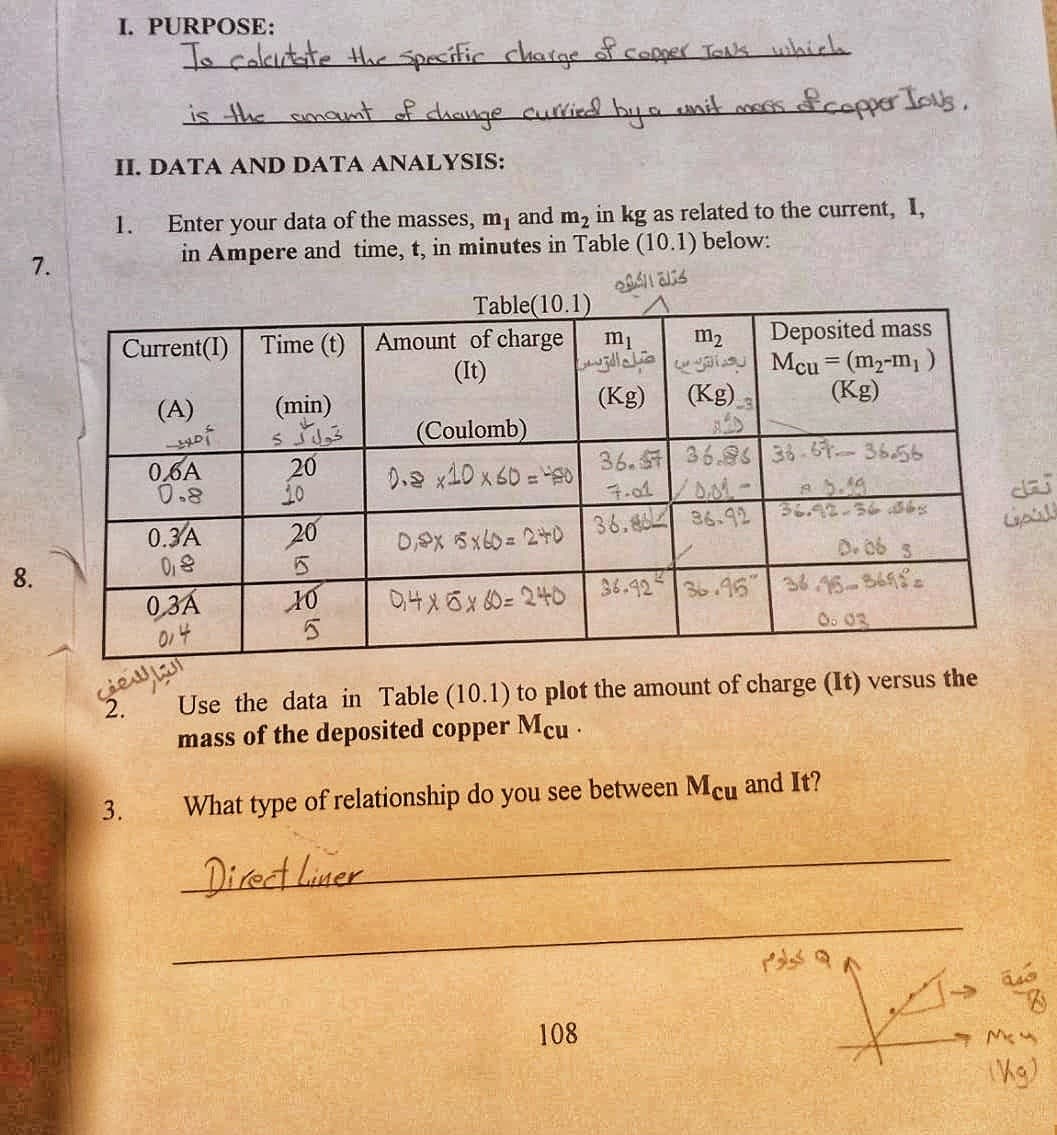 I. PURPOSE:
To calclutate the specific charge of copper Ions which
is the amount of change curried by a unit mass of copper Ions.
II. DATA AND DATA ANALYSIS:
1. Enter your data of the masses, m₁ and m₂ in kg as related to the current, I,
in Ampere and time, t, in minutes in Table (10.1) below:
7.
كتلة
Table(10.1)
Current(I) Time (t) Amount of charge m₁ m₂ Deposited mass
(It) قبل الترسيب بعد الترسيب M_cu = (m₂-m₁ )
(A) (min) (Kg) (Kg) (Kg)
أمبير (Coulomb)
0.6A 20 0.8 x10 x 60 = 480 36.57 36.86 36.67 - 36.56
0.8 10 7.01 0.01 -
0.3A 20 0,8x 5x60= 240 36.92 36.92-36
0,8 5 0.06
8.
0.3A 10 0,4 x 5 x 60= 240 36.92 36.95 36.95-
0,4 5 0.03
التيار للنصف
2. Use the data in Table (10.1) to plot the amount of charge (It) versus the
mass of the deposited copper M_cu .
3. What type of relationship do you see between M_cu and It?
Direct Liner
Q كولوم
108
Mcu
(Kg)